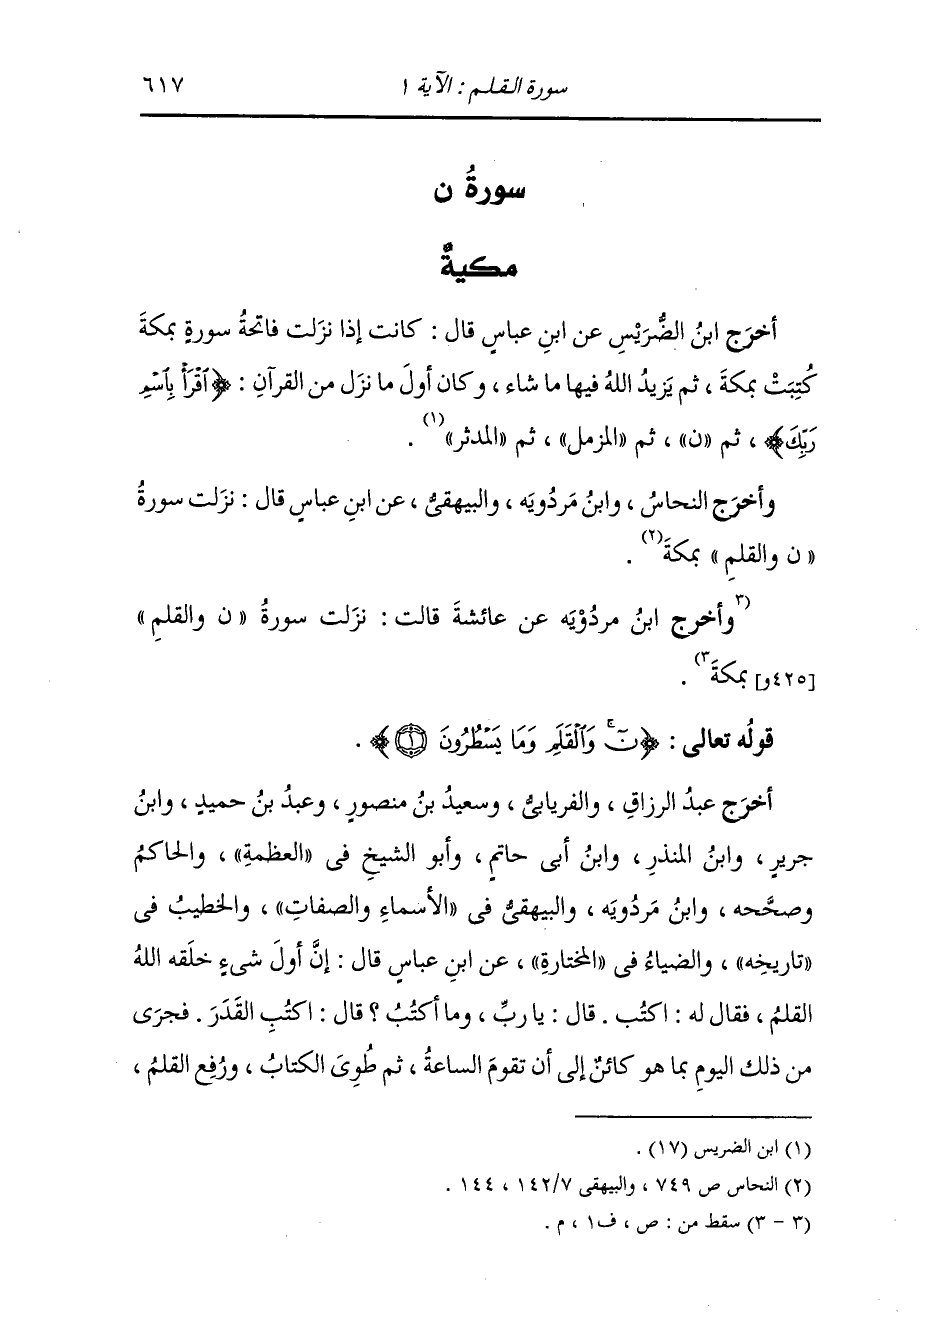 سورة القلم : الآية ١ ٦١٧
سورةُ ن
مكيةٌ
أخرَج ابنُ الضُّرَيْسِ عن ابنِ عباسٍ قال : كانت إذا نزَلت فاتحةُ سورةٍ بمكةَ
كُتِبَتْ بمكةَ ، ثم يَزيدُ اللهُ فيها ما شاء ، وكان أولَ ما نزَل من القرآنِ : ﴿ٱقۡرَأۡ بِٱسۡمِ
رَبِّكَ﴾ ، ثم «ن» ، ثم «المزمل» ، ثم «المدثر»(١) .
وأخرَج النحاسُ ، وابنُ مَردُويَه ، والبيهقىُّ ، عن ابنِ عباسٍ قال : نزَلت سورةُ
« ن والقلمِ » بمكةَ(٢) .
(٣وأخرج ابنُ مردُوْيَه عن عائشةَ قالت : نزَلت سورةُ « ن والقلمِ »
[٤٢٥و] بمكةَ٣) .
قولُه تعالى : ﴿نٓۚ وَٱلۡقَلَمِ وَمَا يَسۡطُرُونَ ١﴾ .
أخرَج عبدُ الرزاقِ ، والفريابىُّ ، وسعيدُ بنُ منصورٍ ، وعبدُ بنُ حميدٍ ، وابنُ
جريرٍ ، وابنُ المنذرِ ، وابنُ أبى حاتمٍ ، وأبو الشيخِ فى «العظمةِ» ، والحاكمُ
وصحَّحه ، وابنُ مَردُويَه ، والبيهقىُّ فى «الأسماءِ والصفاتِ» ، والخطيبُ فى
«تاريخِه» ، والضياءُ فى «المختارةِ» ، عن ابنِ عباسٍ قال : إنَّ أولَ شىءٍ خلَقه اللهُ
القلمُ ، فقال له : اكتُب . قال : يا ربِّ ، وما أكتُبُ ؟ قال : اكتُبِ القَدَرَ . فجرَى
من ذلك اليومِ بما هو كائنٌ إلى أن تقومَ الساعةُ ، ثم طُوِىَ الكتابُ ، ورُفِع القلمُ ،
(١) ابن الضريس (١٧) .
(٢) النحاس ص ٧٤٩ ، والبيهقى ١٤٢/٧ ، ١٤٤ .
(٣ - ٣) سقط من : ص ، ف١ ، م .